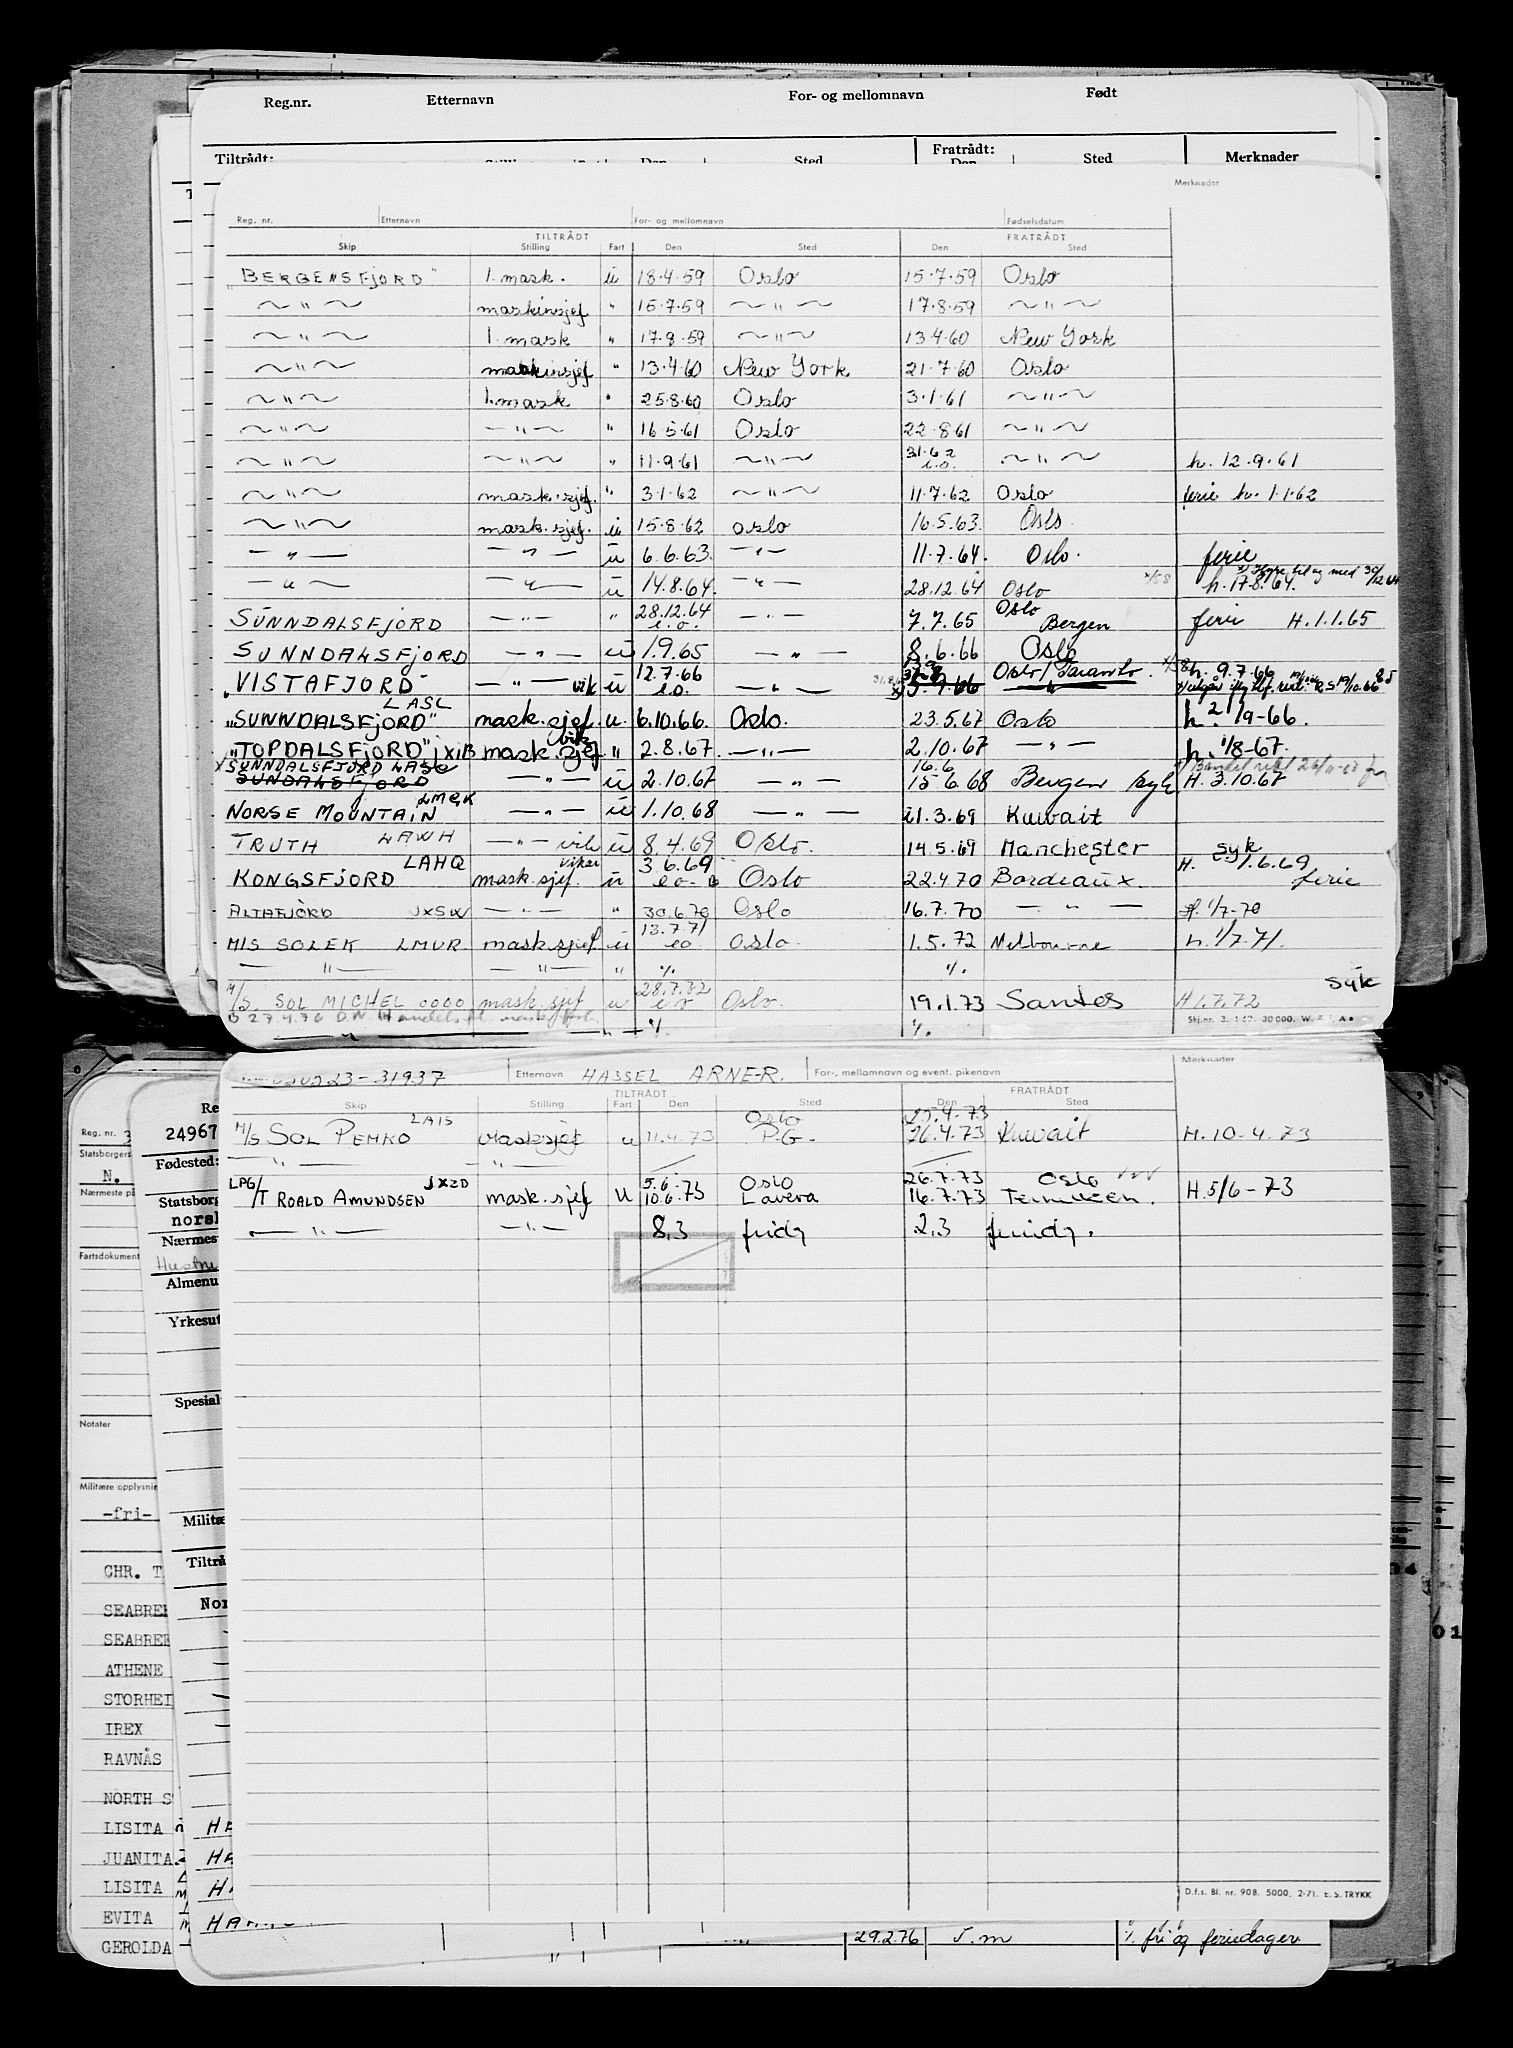 Reg.nr. Etternavn For- og mellomnavn Født
Tiltrådt: Sted Fratrådt: Sted Merknader
Merknader
Reg. nr. Etternavn For- og mellomnavn Fødselsdatum
TILTRÅDT FRATRÅDT
Skip Stilling Fart Den Sted Den Sted
"BERGENSFJORD" 1. mask. u 18.4.59 Oslo 15.7.59 Oslo
~ " ~ maskinsjef " 15.7.59 ~ " ~ 17.8.59 ~ " ~
~ " ~ 1. mask " 17.8.59 ~ " ~ 13.4.60 New York
~ " ~ maskinsjef " 13.4.60 New York 21.7.60 Oslo
~ " ~ 1. mask " 25.8.60 Oslo 3.1.61 ~ " ~
~ " ~ ~ " ~ " 16.5.61 Oslo 22.8.61 ~ " ~
~ " ~ ~ " ~ " 11.9.61 ~ " ~ 31.62 i.o. ~ " ~ h. 12.9.61
~ " ~ mask.sjef. " 3.1.62 ~ " ~ 11.7.62 Oslo ferie h. 1.1.62
~ " ~ mask.sjef. u 15.8.62 oslo 16.5.63. Oslo.
— " — — " — u 6.6.63. — " — 11.7.64. Oslo. ferie
— " — — " — u 14.8.64. — " — 28.12.64 Oslo h. 17.8.64.
SUNNDALSFJORD — " — " 28.12.64 e.o. — " — 7.7.65 Oslo Bergen ferie H.1.1.65
SUNNDALSFJORD — " — u 1.9.65 — " — 8.6.66 Oslo
"VISTAFJORD" — " — vik u 12.7.66 e.o. — " — 5.9.66 Oslo/Taranto h. 9.7.66
"SUNNDALSFJORD" LASL mask.sjef. u. 6.10.66. Oslo. 23.5.67 Oslo h. 2/9-66.
"TOPDALSFJORD" JXIB mask.sjef vik " 2.8.67. — " — 2.10.67 — " — h. 1/8-67.
x SUNNDALSFJORD LASL
SUNDALSFJORD — " — u 2.10.67 — " — 16.6 15 6.68 Bergen syk H. 3.10.67
NORSE MOUNTAIN LMGK — " — u 1.10.68 — " — 21.3.69 Kuwait
TRUTH LAWH — " — vik u 8.4.69 Oslo. 14.5.69 Manchester syk
KONGSFJORD LAHQ mask.sjef. vikar u 3.6.69 eo- Oslo 22.4.70 Bordeaux. H. 1.6.69 ferie
ALTAFJORD JXSW — " — " 30.6.70 Oslo 16.7.70 — " — H. 1/7-70
M/S SOLEK LMUR mask.sjef. u 13.7.71 eo. Oslo. 1.5.72 Melbourne h. 1/7.71.
— " — — " — " %. %.
M/S. SOL MICHEL OOOO mask.sjef u 28.7.72 e o Oslo. 19.1.73 Santos H 1.7.72 syk
— " — %. %. Skj.nr. 3. 1-62. 30 000. W.
23-31937 Etternavn HASSEL ARNE-R. For-, mellomnavn og event. pikenavn Merknader
TILTRÅDT FRATRÅDT
Skip Stilling Fart Den Sted Den Sted
M/S SOL PEMKO LAIS Masksjef u 11.4.73 Oslo P.G. 25.4.73 26.4.73 Kuwait H.10-4.73
— " — — " —
LPG/T ROALD AMUNDSEN JXZD mask.sjef U 5.6- 10.6.73 Oslo Lavera 26.7.73 16.7.73 Oslo H.5/6-73
— " — — " — 8,3 frid. 2,3
D.f.s. Bl. nr. 908. 5000, 2-71. E.S. TRYKK
Reg. nr. 3
Statsborgers
N.
Nærmeste på
Fartsdokument
Notater
Militære opplysnin
-fri-
CHR. T
SEABREE
SEABREE
ATHENE
STORHEI
IREX
RAVNÅS
NORTH S
LISITA
JUANITA
LISITA
EVITA
GEROLDA
Re
24967
Fødested:
Statsborg
norsk
Nærmest
Hustru
Almenu
Yrkesut
Spesial
Militæ
Tiltrå
Nor
29.2.76 J.m %. fri og feriedager